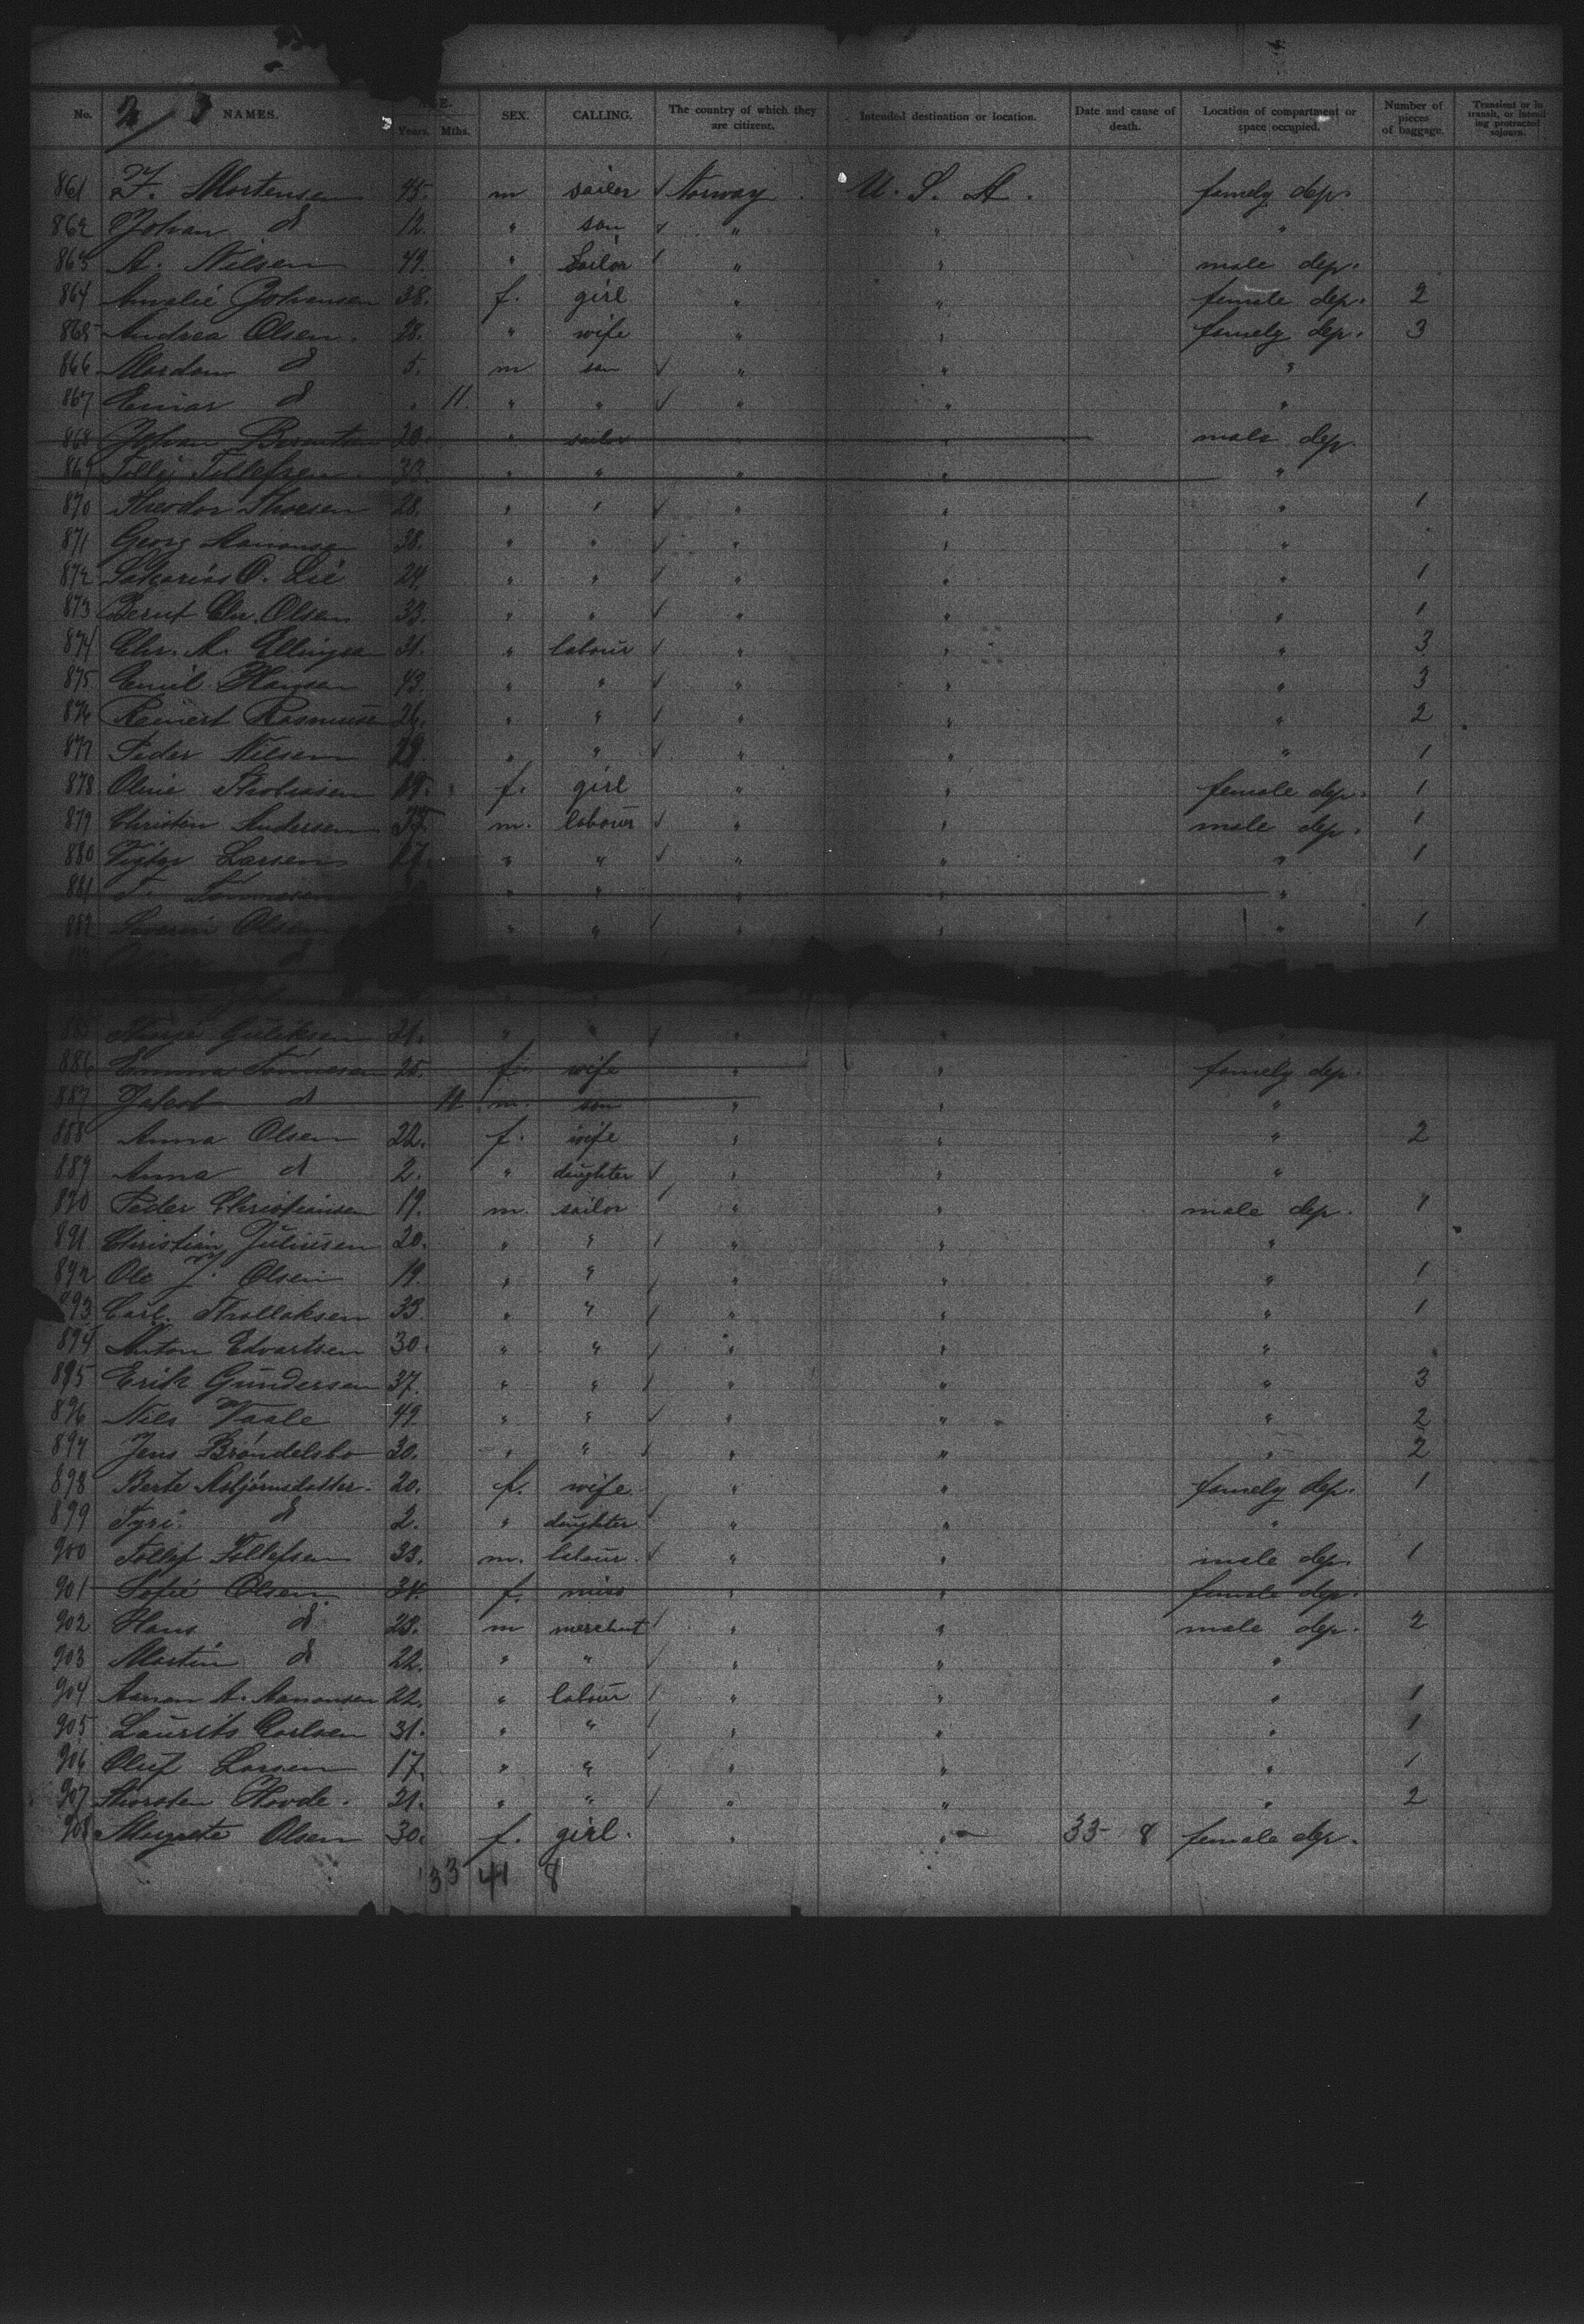 No. NAMES. AGE. Years. Mths. SEX. CALLING. The country of which they are citizen. Intended destination or location. Date and cause of death. Location of compartment or space occupied. Number of pieces of baggage. Transient or in transit, or intending protracted sojourn.
861 F. Mortensen 45. m sailor Norway. U. S. A. famely dep.
862 Johan d 12. " son " " "
863 A. Nilsen 49. " Sailor " " male dep.
864 Amalie Johansen 38. f. girl " " female dep. 2
865 Andrea Olsen. 28. " wife " " famely dep. 3
866 d 5. m son " " "
867 Einar d " 11. " " " " "
868 Johan 20. " sailor " " male dep.
869 Tollefsen 33. " " " " "
870 Theodor 28. " " " " " 1
871 Georg Aanonsen 38. " " " " "
872 O. Lie 24. " " " " " 1
873 Bernt Chr. Olsen 33. " " " " " 1
874 Chr. A. Ellingsen 31. " labour " " " 3
875 Emil Hansen 43. " " " " " 3
876 Reinert Rasmussen 26. " " " " " 2
877 Peder Nilsen " " " " " 1
878 Oline 19. f. girl " " female dep. 1
879 Andersen m. labour " " male dep. 1
880 Larsen 17. " " " " " 1
881 " " " " "
882 Severin Olsen " " " " " 1
885 Guliksen 21. " " " "
886 Emma Tönnesen 25. f. wife " " famely dep.
887 Jakob d 11 m. son " " "
888 Anna Olsen 22. f. wife " " " 2
889 Anna d 2. " daughter " " "
890 Peder Christiansen 19. m. sailor " " male dep. 1
891 Christian Juliusen 20. " " " " "
892 Ole J. Olsen 19. " " " " " 1
893 Carl. Thollaksen 33. " " " " " 1
894 Anton Edvartsen 30. " " " " "
895 Erik Gundersen 37. " " " " " 3
896 Nils Vaale 49. " " " " " 2
897 Jens Brøndelsbo 30. " " " " " 2
898 Berte Asbjörnsdatter. 20. f. wife " " famely dep. 1
899 Tyri d 2. " daughter " " "
900 Tollef Tollefsen 33. m. labour. " " male dep. 1
901 Sofie Olsen. f. miss " " female dep.
902 Hans d 23. m merchent " " male dep. 2
903 Martin d 22. " " " " "
904 Aanon A. Aanonsen 22. " labour " " " 1
905 Laurits Carlsen 31. " " " " " 1
906 Oluf Larsen 17. " " " " " 1
907 Thorsten Hovde. 21. " " " " " 2
908 Margrete Olsen 30. f. girl. " " 33 - 8 female dep.
33 41 8